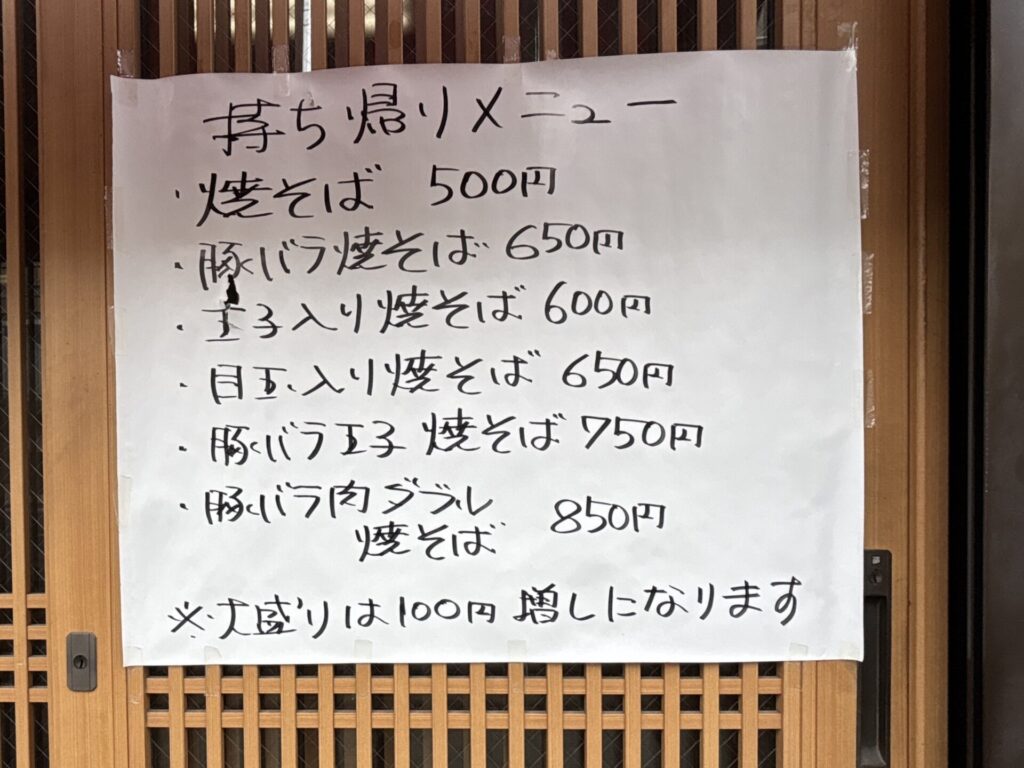 持ち帰りメニュー
・焼そば 500円
・豚バラ焼そば 650円
・玉子入り焼そば 600円
・目玉入り焼そば 650円
・豚バラ玉子 焼そば 750円
・豚バラ肉ダブル
焼そば 850円
※大盛りは100円増しになります